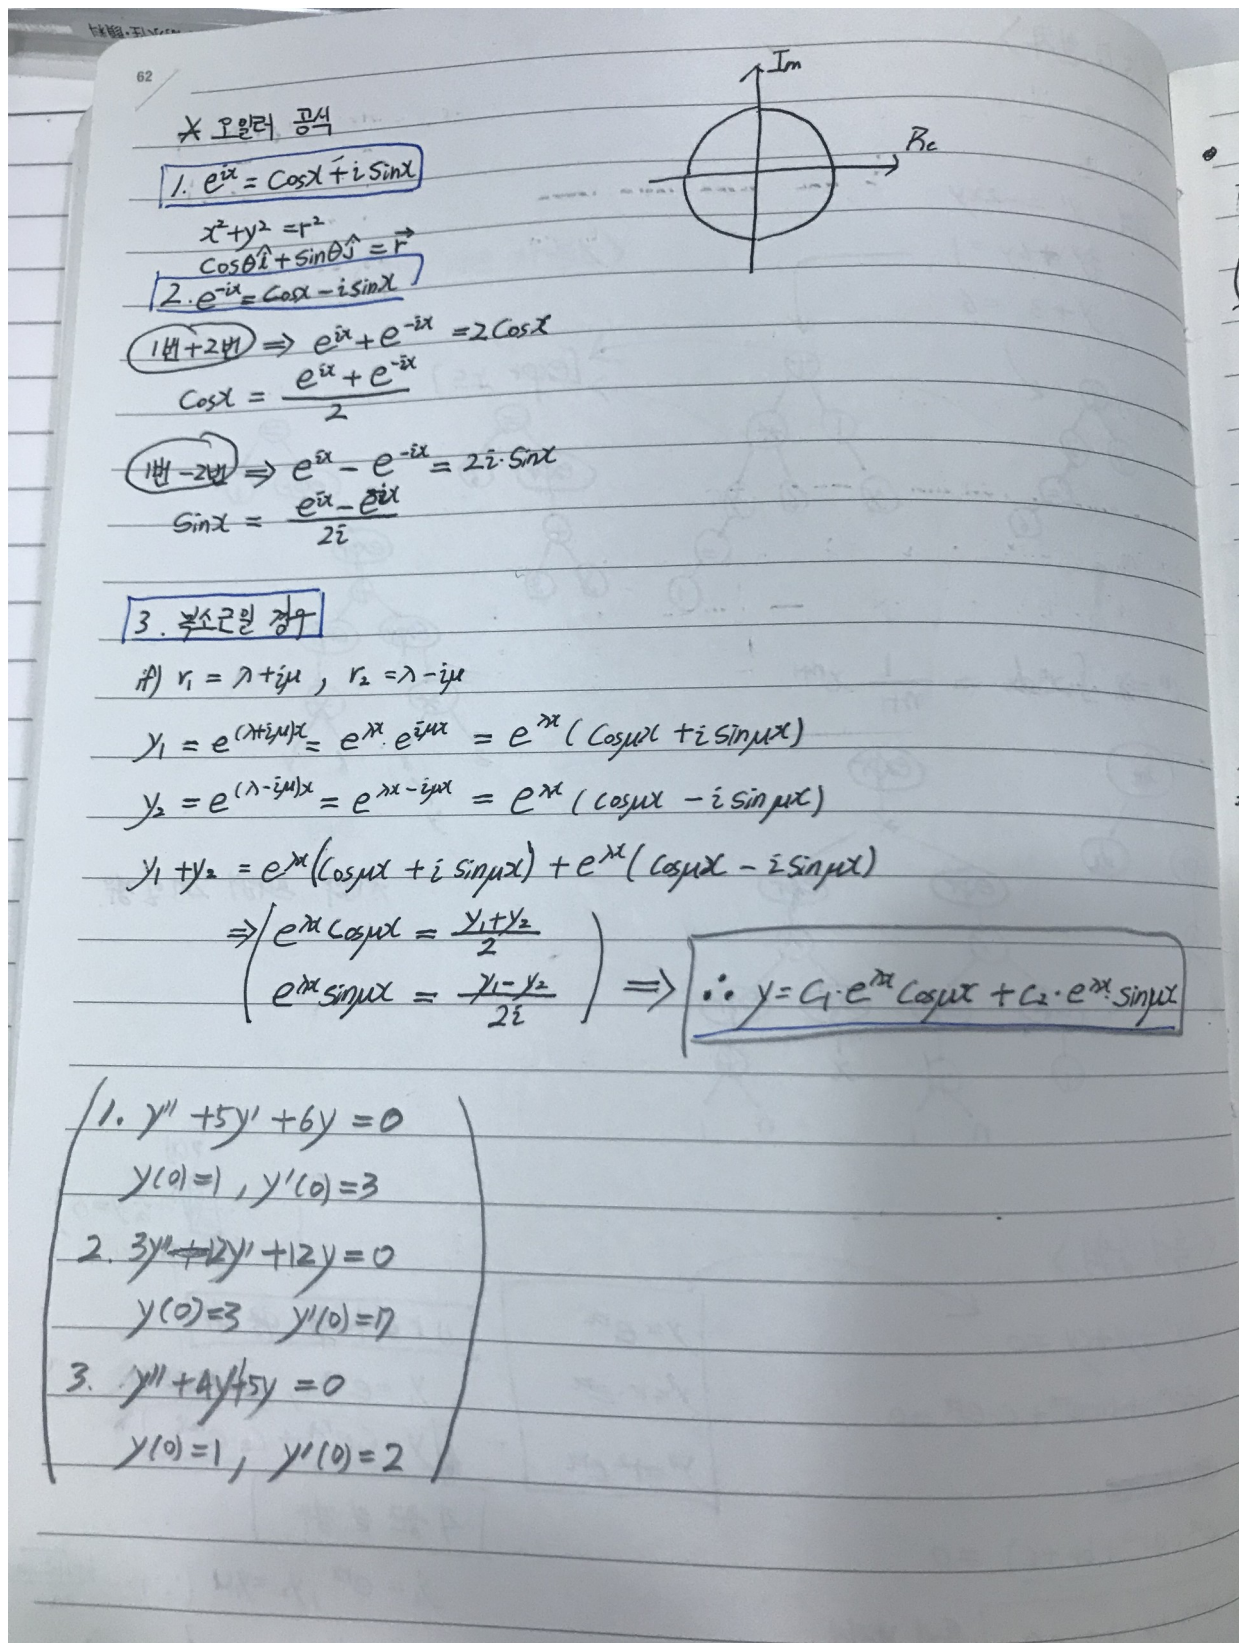 62
* 오일러 공식
Im
Re
1. e^{ix} = Cosx + i Sinx
x² + y² = r²
Cosθî + Sinθĵ = r⃗
2. e^{-ix} = Cosx - i sinx
1번+2번 ⇒ e^{ix} + e^{-ix} = 2Cosx
Cosx = \frac{e^{ix} + e^{-ix}}{2}
1번-2번 ⇒ e^{ix} - e^{-ix} = 2i·Sinx
Sinx = \frac{e^{ix} - e^{-ix}}{2i}
3. 복소근일 경우
if) r₁ = λ+iμ , r₂ = λ-iμ
y₁ = e^{(λ+iμ)x} = e^{λx}·e^{iμx} = e^{λx}(Cosμx + i Sinμx)
y₂ = e^{(λ-iμ)x} = e^{λx-iμx} = e^{λx}(cosμx - i sinμx)
y₁+y₂ = e^{λx}(Cosμx + i sinμx) + e^{λx}(cosμx - i sinμx)
⇒ ( e^{λx}Cosμx = \frac{y₁+y₂}{2}
e^{λx}sinμx = \frac{y₁-y₂}{2i} ) ⇒ ∴ y = C₁·e^{λx}Cosμx + C₂·e^{λx}·sinμx
1. y'' + 5y' + 6y = 0
y(0)=1 , y'(0)=3
2. 3y'' 12y' + 12y = 0
y(0)=3 y'(0)=7
3. y'' + 4y' + 5y = 0
y(0)=1 , y'(0)=2